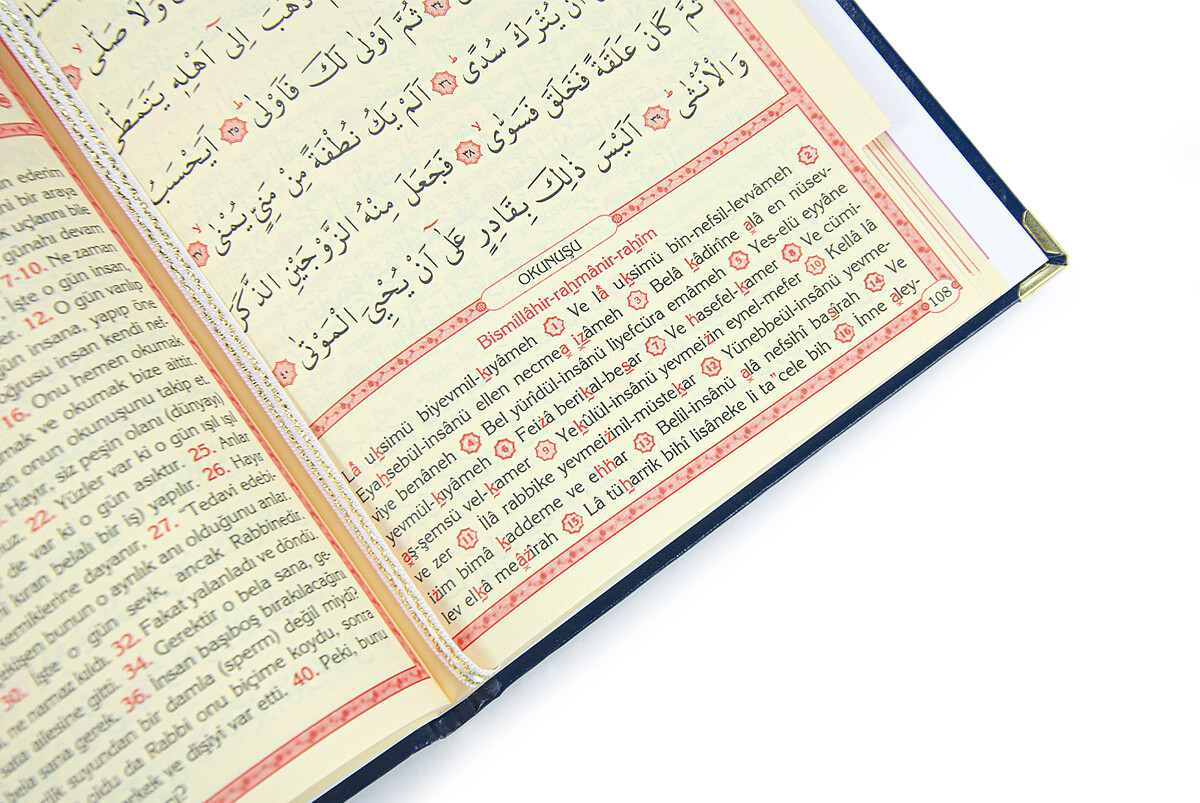 وَلَا صَلّٰى ٣١
ذَهَبَ اِلٰٓى اَهْلِه۪ يَتَمَطّٰى
٣٤ ثُمَّ اَوْلٰى لَكَ فَاَوْلٰى ٣٥ اَيَحْسَبُ
اَنْ يُتْرَكَ سُدًى ٣٦ اَلَمْ يَكُ نُطْفَةً مِنْ مَنِيٍّ يُمْنٰى ٣٧
ثُمَّ كَانَ عَلَقَةً فَخَلَقَ فَسَوّٰى ٣٨ فَجَعَلَ مِنْهُ الزَّوْجَيْنِ الذَّكَرَ
وَالْاُنْثٰى ٣٩ اَلَيْسَ ذٰلِكَ بِقَادِرٍ عَلٰٓى اَنْ يُحْيِيَ الْمَوْتٰى ٤٠
OKUNUŞU
Bismillâhir-raḥmânir-raḥîm
Lâ uksimü biyevmil-kıyâmeh 1 Ve lâ uksimü bin-nefsil-levvâmeh 2
Eyahsebül-insânü ellen necmea izâmeh 3 Belâ kâdirîne alâ en nüsev-
viye benâneh 4 Bel yürîdül-insânü liyefcüra emâmeh 5 Yes-elü eyyâne
yevmül-kıyâmeh 6 Feizâ berikal-besar 7 Ve hasefel-kamer 8 Ve cümi-
aş-şemsü vel-kamer 9 Yekûlül-insânü yevmeizin eynel-mefer 10 Kellâ lâ
ve zer 11 İlâ rabbike yevmeizinil-müstekar 12 Yünebbeül-insânü yevme-
izim bimâ kaddeme ve ehhar 13 Belil-insânü alâ nefsihî basîrah 14 Ve
lev elkâ meâzîrah 15 Lâ tüharrik bihî lisâneke li ta"cele bih 16 İnne aley-
108
ederim
bir araya
uçlarını bile
günahı devam
7-10. Ne zaman
İşte o gün insan,
12. O gün varılıp
gün insana, yapıp öne
insan kendi nef-
16. Onu hemen okumak
ve okumak bize aittir.
onun okunuşunu takip et.
Hayır, siz peşin olanı (dünyayı)
22. Yüzler var ki o gün ışıl ışıl
de var ki o gün asıktır. 25. Anlar
kıran belalı bir iş) yapılır. 26. Hayır
kemiklerine dayanır, 27. "Tedavi edebi-
bunun o ayrılık anı olduğunu anlar.
30. İşte o gün sevk, ancak Rabbinedir.
ne namaz kıldı. 32. Fakat yalanladı ve döndü.
ailesine gitti. 34. Gerektir o bela sana, ge-
bela sana gerek. 36. İnsan başıboş bırakılacağını
suyundan bir damla (sperm) değil miydi?
oldu da Rabbi onu biçime koydu, sonra
erkek ve dişiyi var etti. 40. Peki, bunu